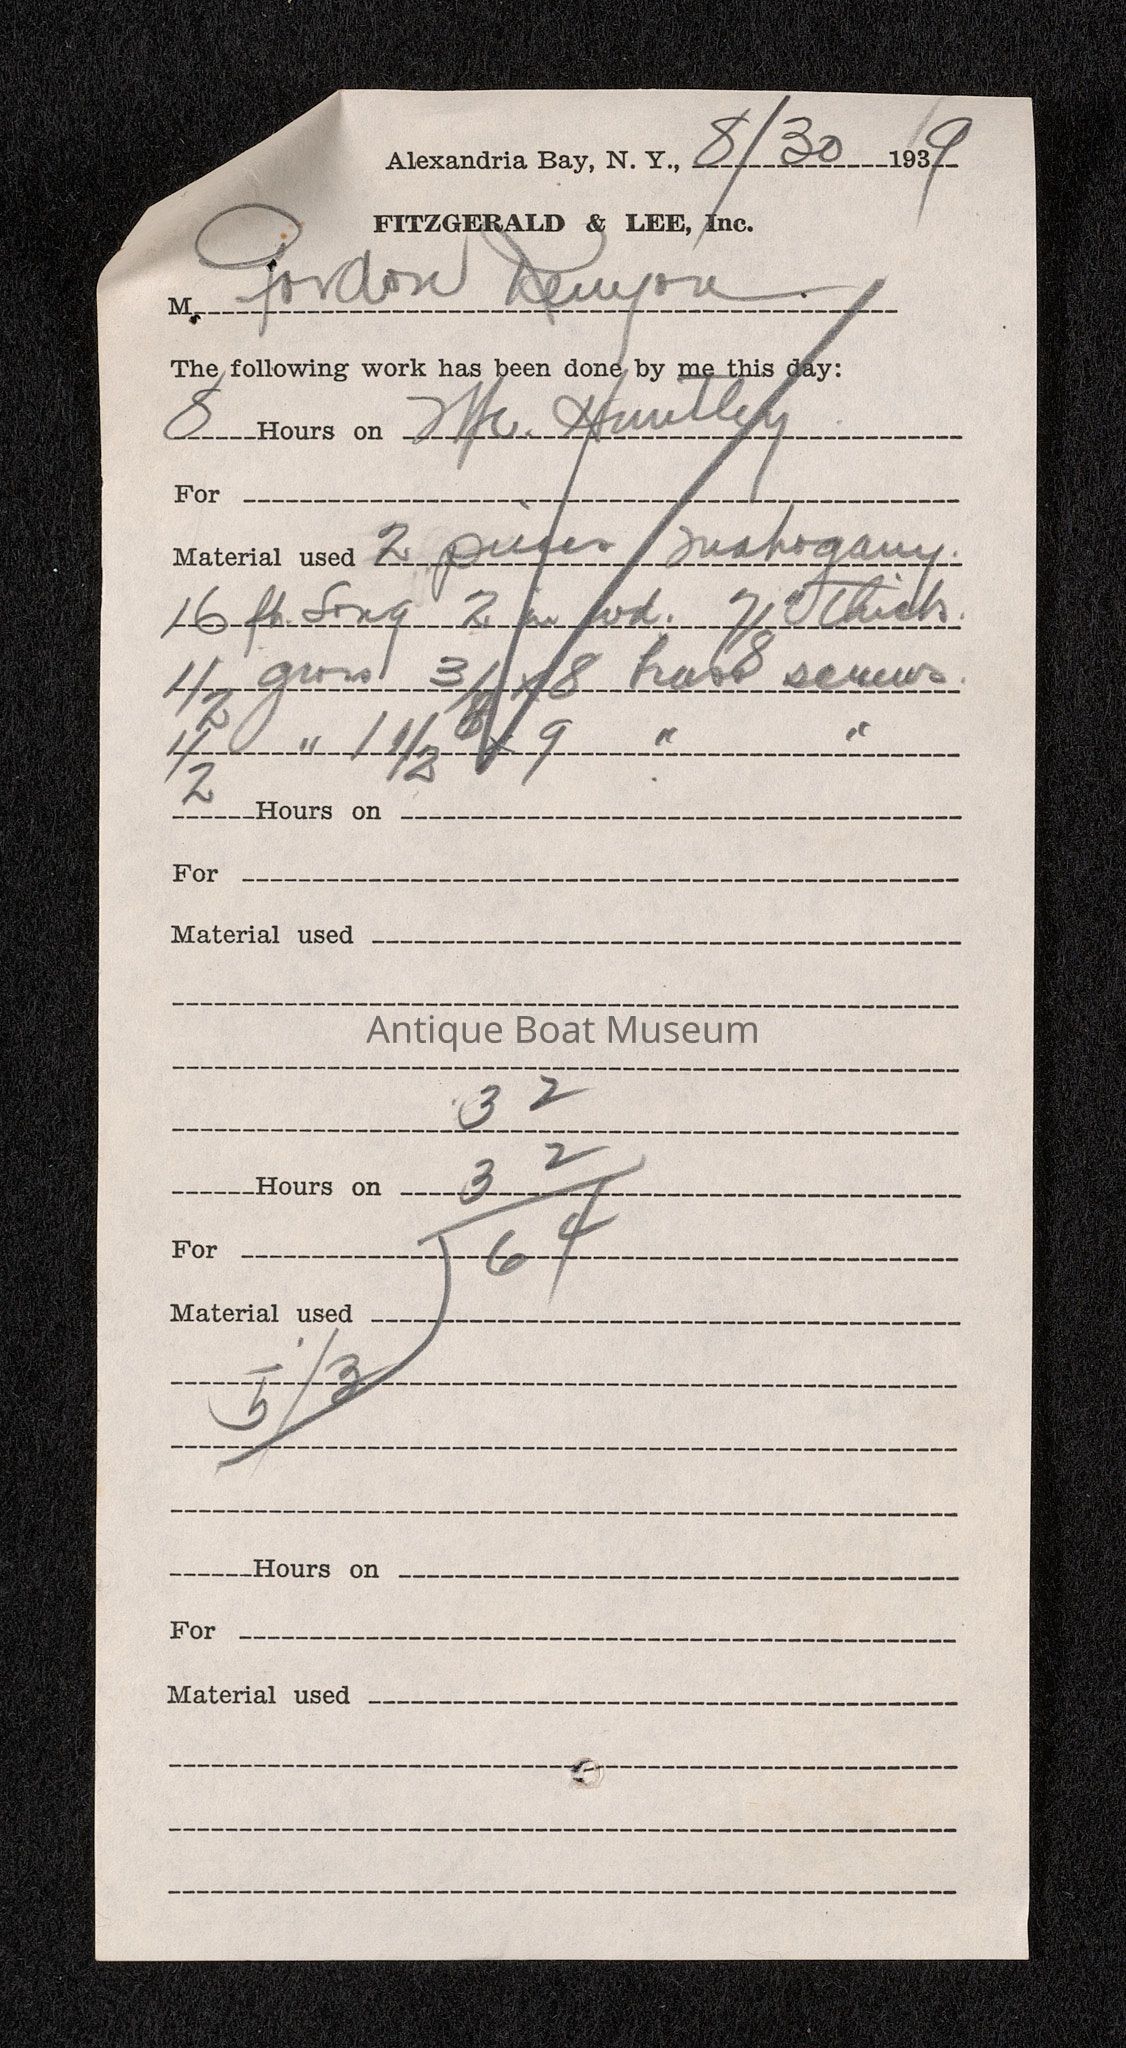 Alexandria Bay, N. Y., 8/30 1939
FITZGERALD & LEE, Inc.
M. Gordon Kenyon.
The following work has been done by me this day:
8 Hours on Mr. Huntley
For
Material used 2 pieces mahogany.
16 ft. long 2 in wd. 7/8" thick.
1/2 gross 3/8 x 8 brass screws.
1/2 " 1 1/2 x 9 " "
Hours on
For
Material used
Antique Boat Museum
32
Hours on 32
For 64
Material used
5/3
Hours on
For
Material used